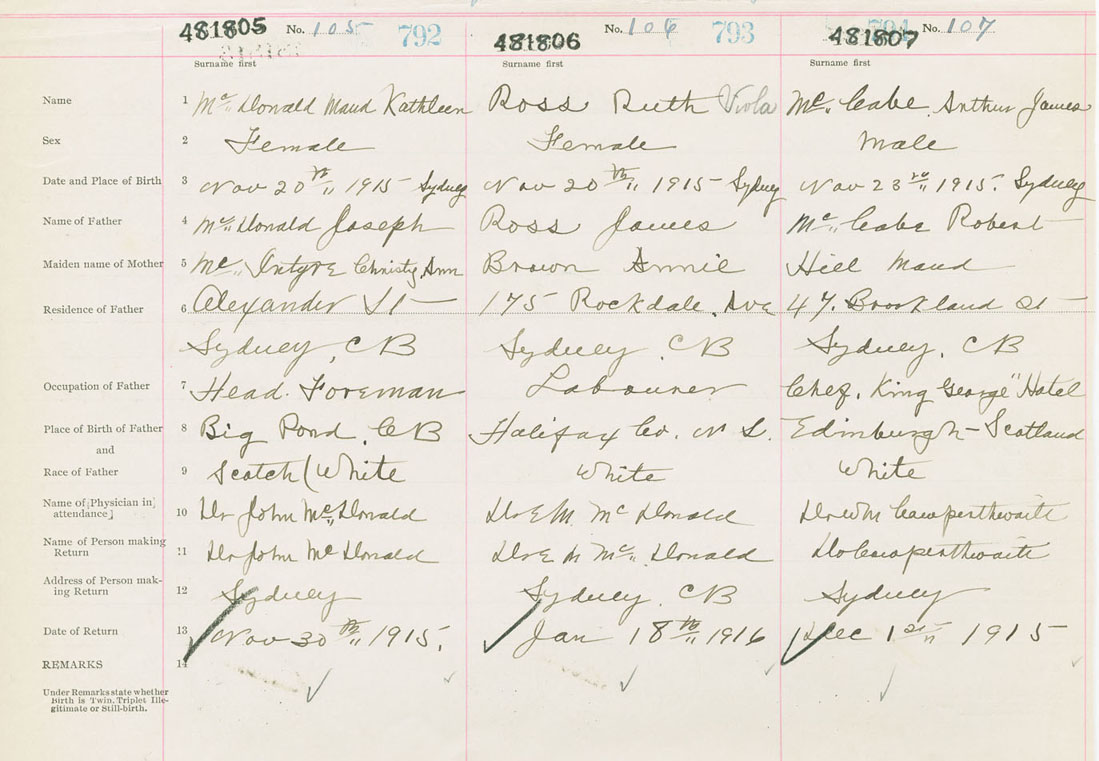 481805 No. 105 792 481806 No. 106 793 481807 No. 107
Surname first Surname first Surname first
Name 1 Mc Donald Maud Kathleen Ross Ruth Viola Mc Cabe Arthur James
Sex 2 Female Female Male
Date and Place of Birth 3 Nov 20th 1915 Sydney Nov 20th 1915 Sydney Nov 23rd 1915. Sydney
Name of Father 4 Mc Donald Joseph Ross James Mc Cabe Robert
Maiden name of Mother 5 Mc Intyre Christy Ann Brown Annie Hill Maud
Residence of Father 6 Alexander St 175 Rockdale Ave 47 Brookland St
Sydney, CB Sydney, CB Sydney, CB
Occupation of Father 7 Head Foreman Labourer Chef, King George Hotel
Place of Birth of Father 8 Big Pond, CB Halifax Co. N S. Edinburgh - Scotland
and
Race of Father 9 Scotch (White White White
Name of [Physician in attendance] 10 Dr John Mc Donald Dr E M Mc Donald Dr W M Cowperthwaite
Name of Person making Return 11 Dr John Mc Donald Dr E M Mc Donald Dr Cowperthwaite
Address of Person mak-
ing Return 12 Sydney Sydney. CB Sydney
Date of Return 13 Nov 30th 1915. Jan 18th 1916 Dec 1st 1915
REMARKS 14
Under Remarks state whether
Birth is Twin, Triplet Ille-
gitimate or Still-birth.